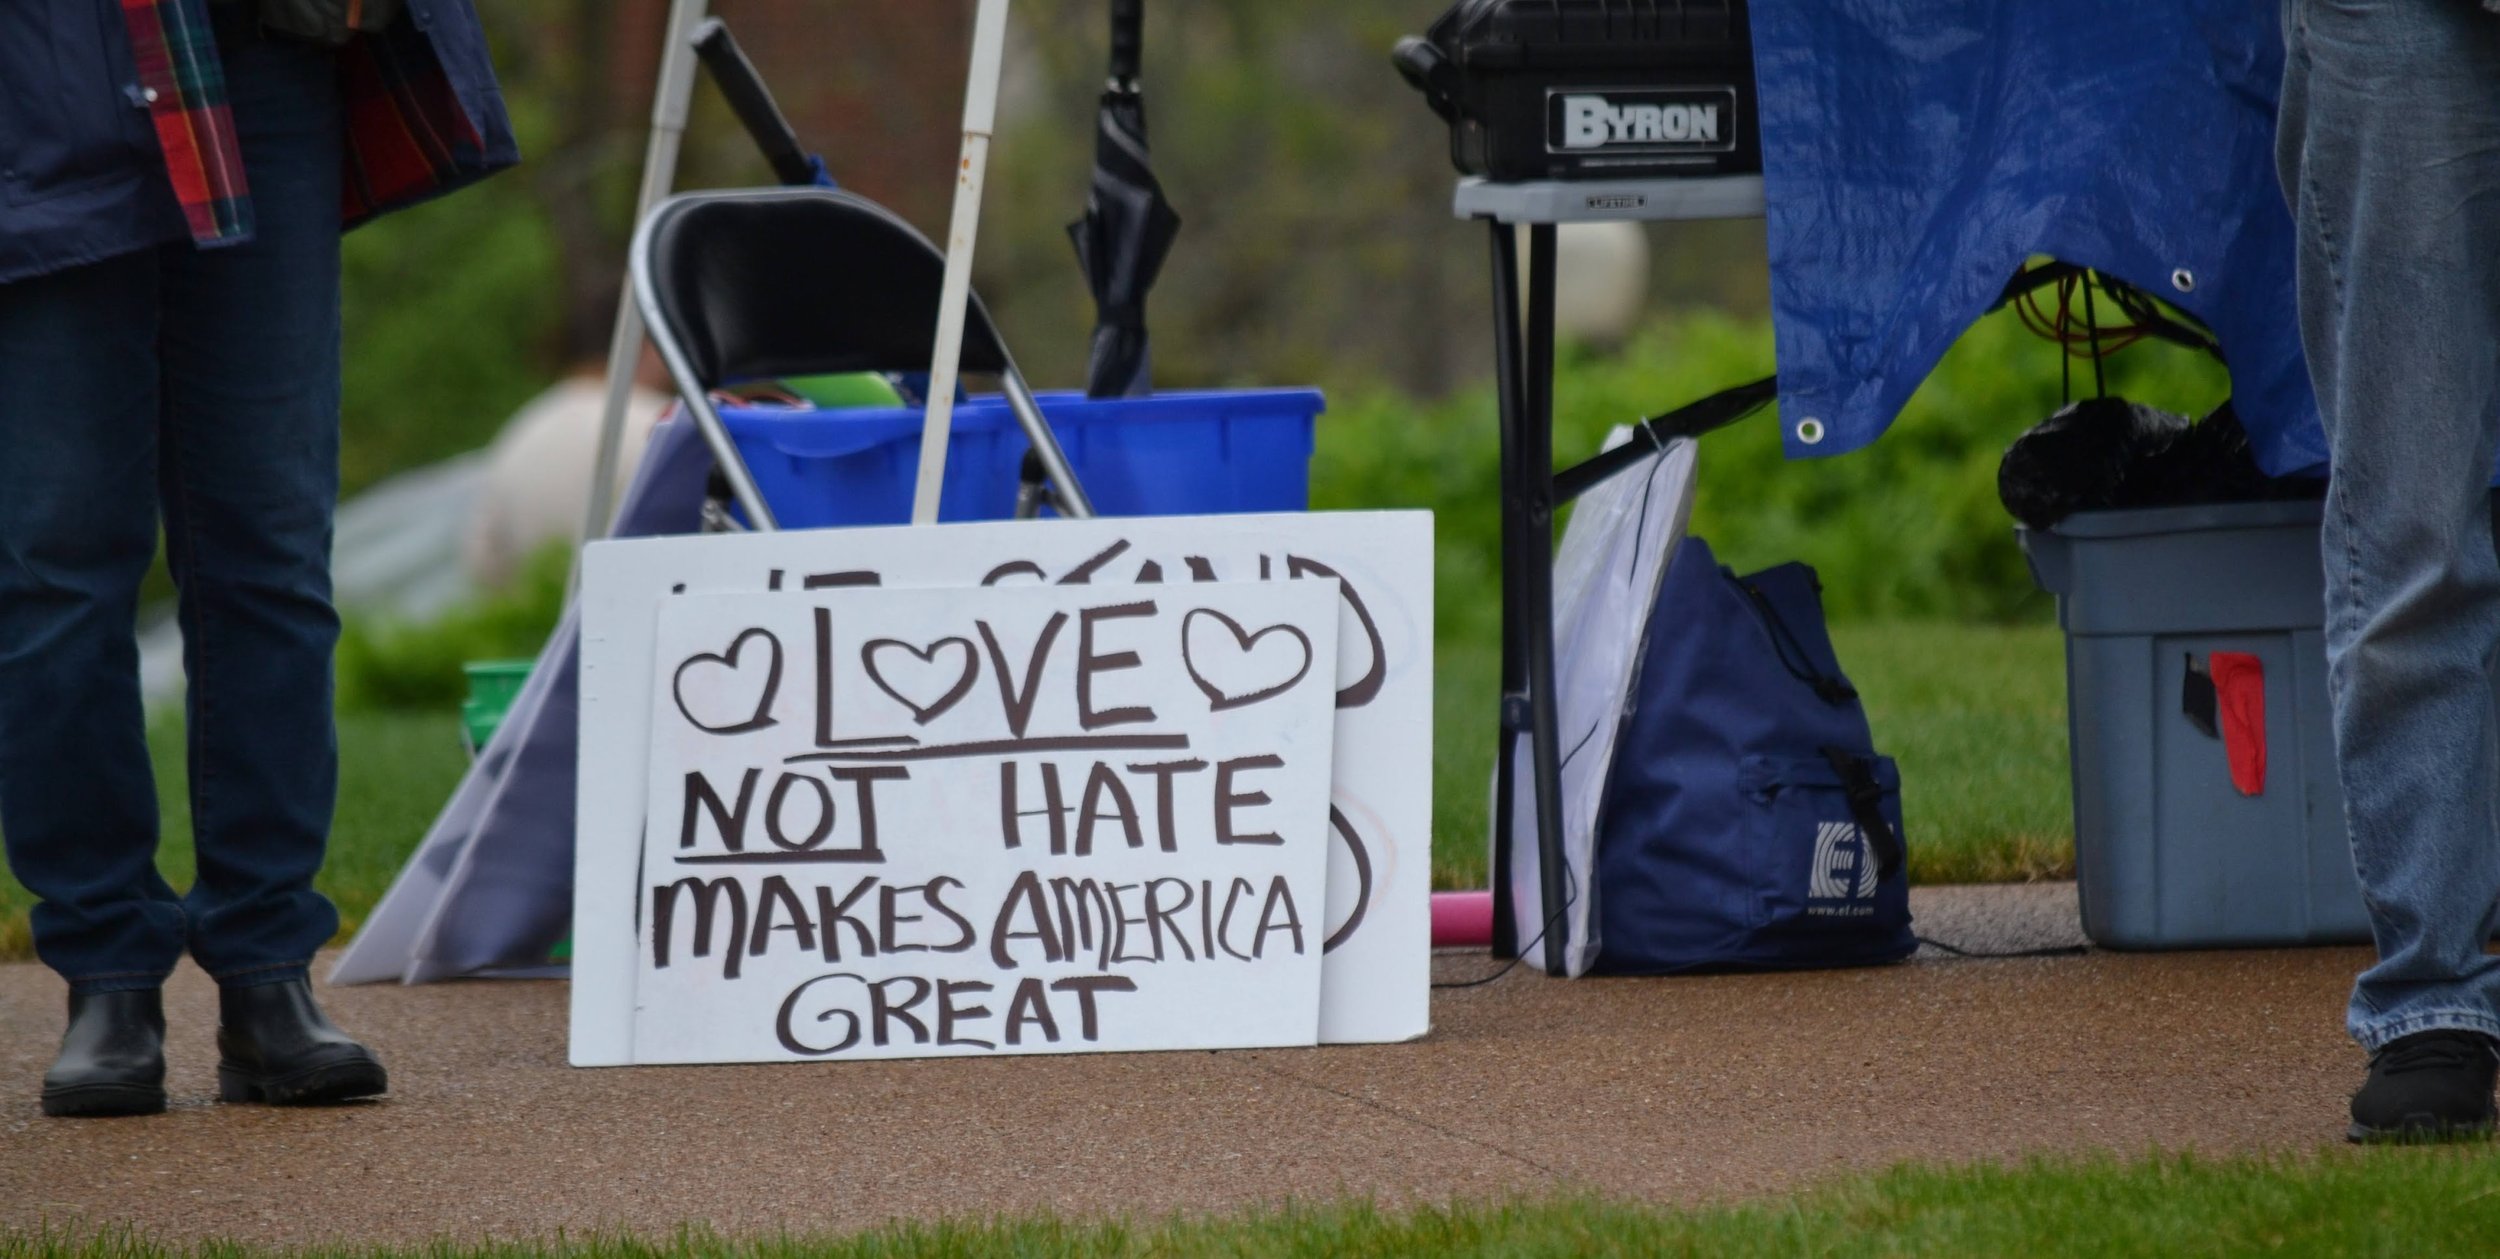 BYRON
LIFETIME
LOVE
NOT HATE
MAKES AMERICA
GREAT
EF
www.ef.com